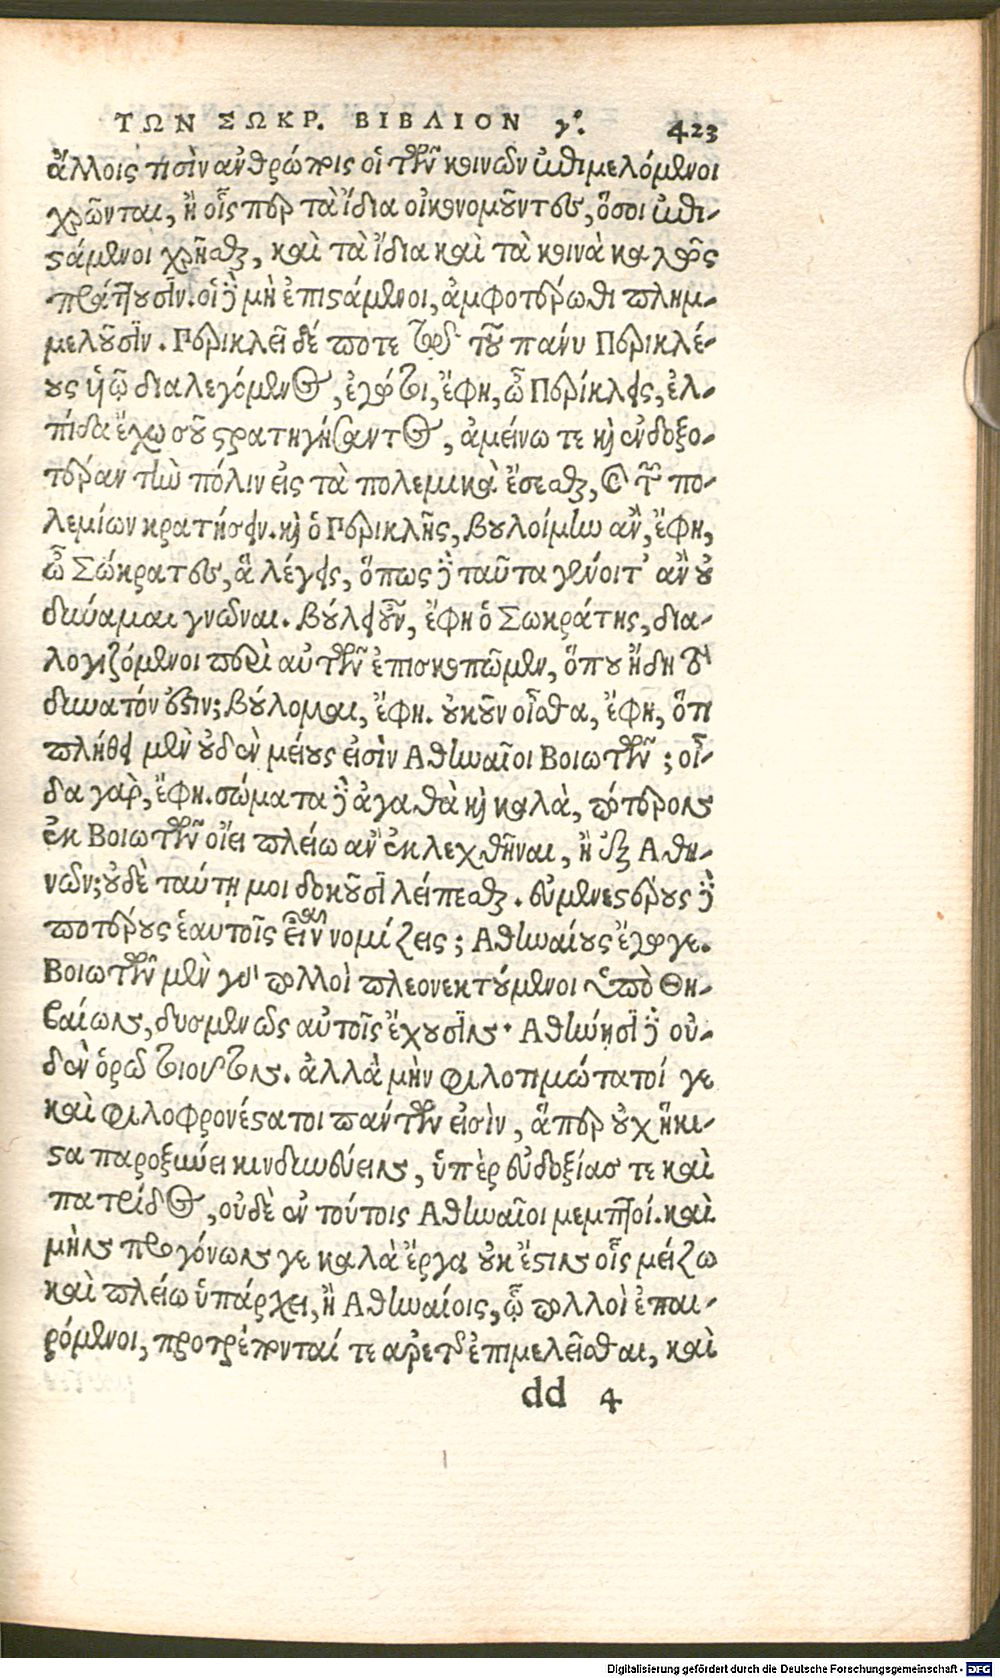 ΤΩΝ ΣΩΚΡ. ΒΙΒΛΙΟΝ γ'. 423
ἄλλοις τισὶν ἀνθρώποις οἱ τῶν κοινῶν ἐπιμελόμενοι
χρῶνται, ἢ οἷς περ τὰ ἴδια οἰκονομοῦντες, ὅσοι ἐπι-
στάμενοι χρῆσθαι, καὶ τὰ ἴδια καὶ τὰ κοινὰ καλῶς
πράττουσιν. οἱ δὲ μὴ ἐπιστάμενοι, ἀμφοτέρωθι πλημ-
μελοῦσιν. Περικλεῖ δέ ποτε τῷ τοῦ πάνυ Περικλέ-
ους ὑῷ διαλεγόμενος, ἐγώ τοι, ἔφη, ὦ Περίκλεις, ἐλ-
πίδα ἔχω σοῦ στρατηγήσαντος, ἀμείνω τε καὶ ἐνδοξο-
τέραν τὴν πόλιν εἰς τὰ πολεμικὰ ἔσεσθαι, καὶ τῶν πο-
λεμίων κρατήσειν. καὶ ὁ Περικλῆς, βουλοίμην ἂν, ἔφη,
ὦ Σώκρατες, ἃ λέγεις, ὅπως δὲ ταῦτα γένοιτ' ἂν οὐ
δύναμαι γνῶναι. βούλει οὖν, ἔφη ὁ Σωκράτης, δια-
λογιζόμενοι περὶ αὐτῶν ἐπισκοπῶμεν, ὅπου ἤδη τὸ
δυνατόν ἐστιν; βούλομαι, ἔφη. οὐκοῦν οἶσθα, ἔφη, ὅτι
πλήθει μὲν οὐδὲν μείους εἰσὶν Ἀθηναῖοι Βοιωτῶν; οἶ-
δα γὰρ, ἔφη. σώματα δὲ ἀγαθὰ καὶ καλὰ, πότερον
ἐκ Βοιωτῶν οἴει πλείω ἂν ἐκλεχθῆναι, ἢ ἐξ Ἀθη-
νῶν; οὐδὲ ταύτῃ μοι δοκοῦσι λείπεσθαι. εὐμενεστέρους δὲ
ποτέρους ἑαυτοῖς εἶναι νομίζεις; Ἀθηναίους ἔγωγε.
Βοιωτῶν μὲν γὰρ πολλοὶ πλεονεκτούμενοι ὑπὸ Θη-
βαίων, δυσμενῶς αὐτοῖς ἔχουσιν. Ἀθήνησι δὲ οὐ-
δὲν ὁρῶ τοιοῦτον. ἀλλὰ μὴν φιλοτιμώτατοί γε
καὶ φιλοφρονέστατοι πάντων εἰσὶν, ἅπερ οὐχ ἥκι-
στα παροξύνει κινδυνεύειν, ὑπὲρ εὐδοξίας τε καὶ
πατρίδος, οὐδὲ ἐν τούτοις Ἀθηναῖοι μεμπτοί. καὶ
μὴν προγόνων γε καλὰ ἔργα οὐκ ἔστιν οἷς μείζω
καὶ πλείω ὑπάρχει, ἢ Ἀθηναίοις, ᾧ πολλοὶ ἐπαι-
ρόμενοι, προτρέπονταί τε ἀρετῆς ἐπιμελεῖσθαι, καὶ
dd 4
Digitalisierung gefördert durch die Deutsche Forschungsgemeinschaft - DFG